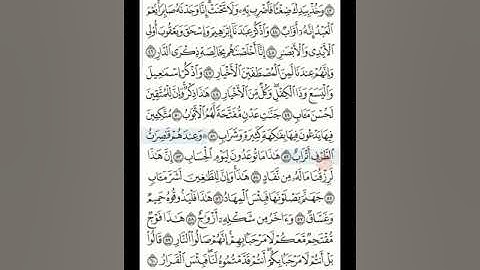 ٤٣ وَخُذْ بِيَدِكَ ضِغْثًا فَٱضْرِب بِّهِۦ وَلَا تَحْنَثْ إِنَّا وَجَدْنَٰهُ صَابِرًا نِّعْمَ
ٱلْعَبْدُ إِنَّهُۥٓ أَوَّابٌ ٤٤ وَٱذْكُرْ عِبَٰدَنَآ إِبْرَٰهِيمَ وَإِسْحَٰقَ وَيَعْقُوبَ أُو۟لِى
ٱلْأَيْدِى وَٱلْأَبْصَٰرِ ٤٥ إِنَّآ أَخْلَصْنَٰهُم بِخَالِصَةٍ ذِكْرَى ٱلدَّارِ ٤٦
وَإِنَّهُمْ عِندَنَا لَمِنَ ٱلْمُصْطَفَيْنَ ٱلْأَخْيَارِ ٤٧ وَٱذْكُرْ إِسْمَٰعِيلَ
وَٱلْيَسَعَ وَذَا ٱلْكِفْلِ وَكُلٌّ مِّنَ ٱلْأَخْيَارِ ٤٨ هَٰذَا ذِكْرٌ وَإِنَّ لِلْمُتَّقِينَ
لَحُسْنَ مَـَٔابٍ ٤٩ جَنَّٰتِ عَدْنٍ مُّفَتَّحَةً لَّهُمُ ٱلْأَبْوَٰبُ ٥٠ مُتَّكِـِٔينَ
فِيهَا يَدْعُونَ فِيهَا بِفَٰكِهَةٍ كَثِيرَةٍ وَشَرَابٍ ٥١ وَعِندَهُمْ قَٰصِرَٰتُ
ٱلطَّرْفِ أَتْرَابٌ ٥٢ هَٰذَا مَا تُوعَدُونَ لِيَوْمِ ٱلْحِسَابِ ٥٣ إِنَّ هَٰذَا
لَرِزْقُنَا مَا لَهُۥ مِن نَّفَادٍ ٥٤ هَٰذَا وَإِنَّ لِلطَّٰغِينَ لَشَرَّ مَـَٔابٍ
٥٥ جَهَنَّمَ يَصْلَوْنَهَا فَبِئْسَ ٱلْمِهَادُ ٥٦ هَٰذَا فَلْيَذُوقُوهُ حَمِيمٌ
وَغَسَّاقٌ ٥٧ وَءَاخَرُ مِن شَكْلِهِۦٓ أَزْوَٰجٌ ٥٨ هَٰذَا فَوْجٌ
مُّقْتَحِمٌ مَّعَكُمْ لَا مَرْحَبًۢا بِهِمْ إِنَّهُمْ صَالُوا۟ ٱلنَّارِ ٥٩ قَالُوا۟
بَلْ أَنتُمْ لَا مَرْحَبًۢا بِكُمْ أَنتُمْ قَدَّمْتُمُوهُ لَنَا فَبِئْسَ ٱلْقَرَارُ ٦٠